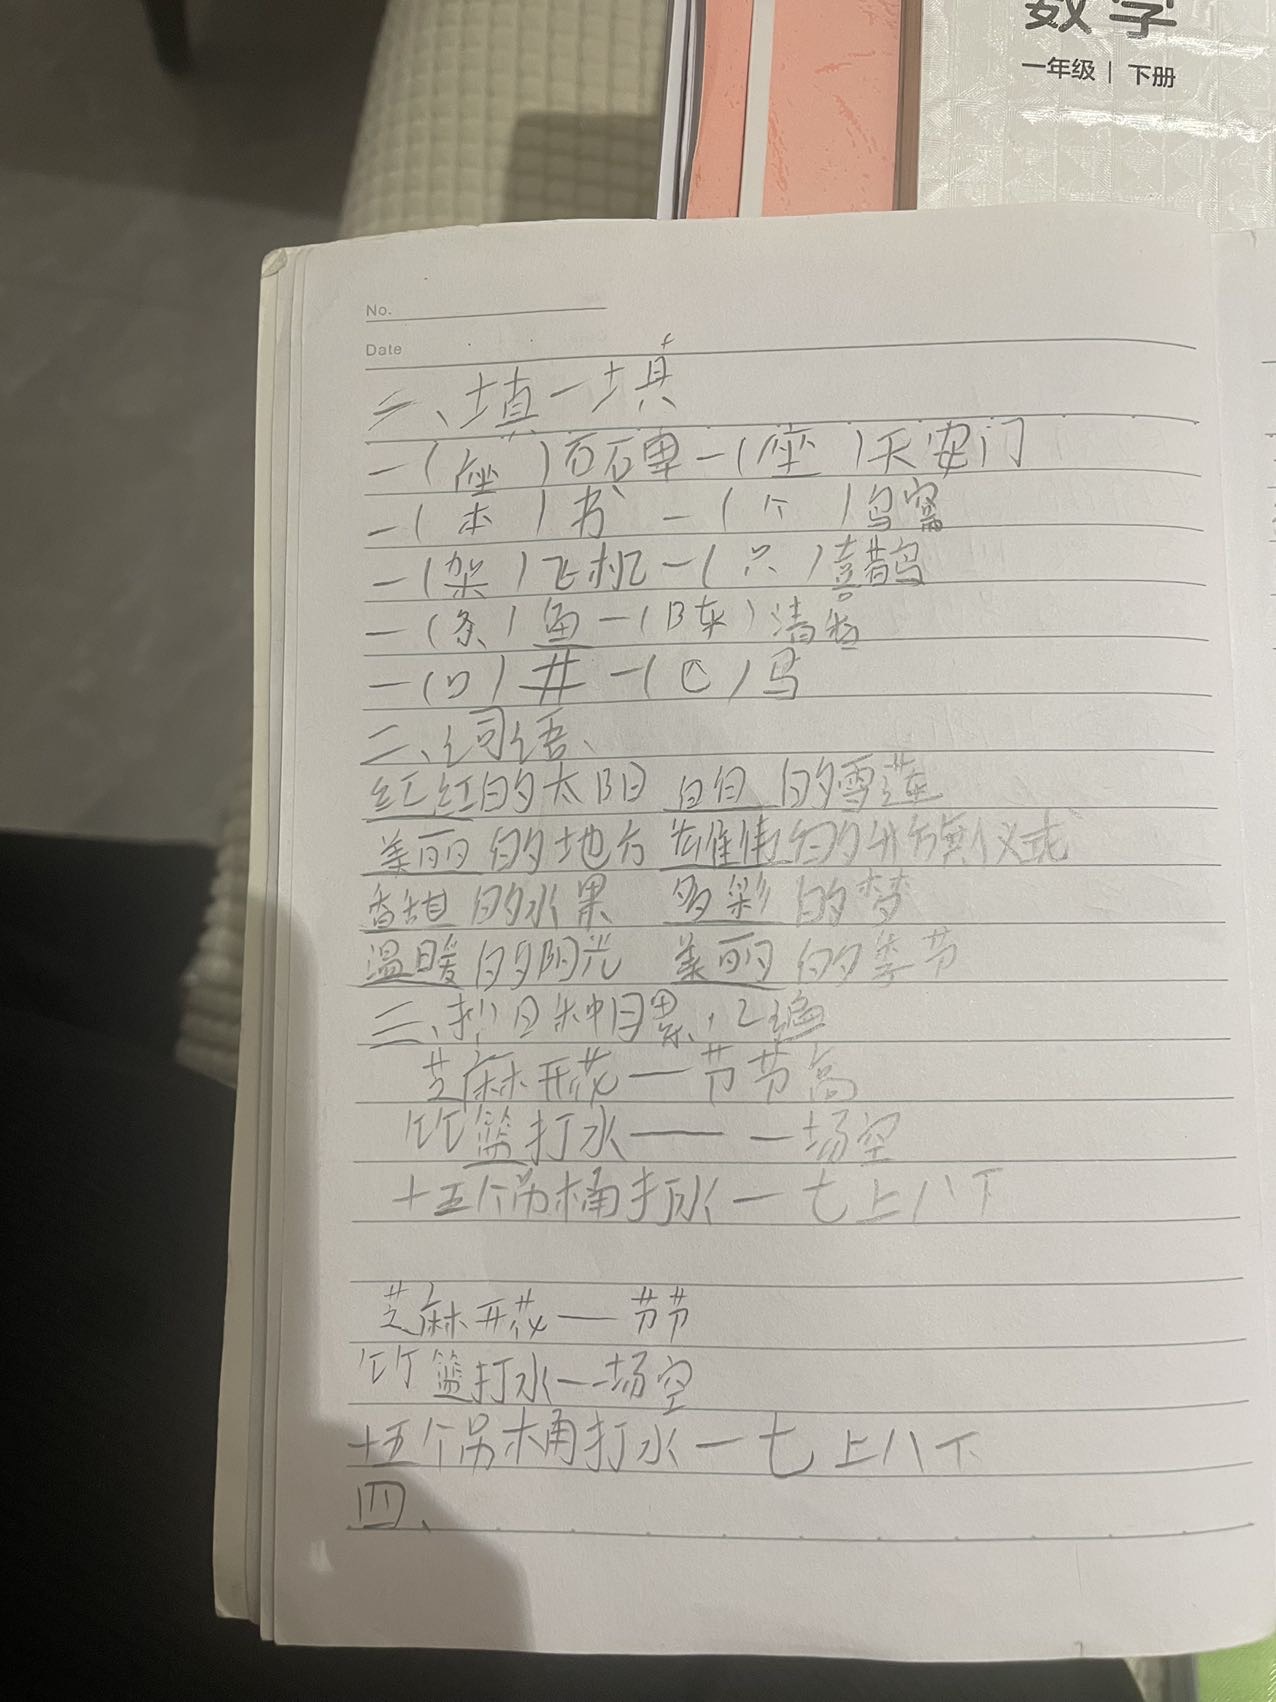 数学
一年级 | 下册
No.
Date
二、填一填
一(座)石碑一(座)天安门
一(本)书 一(个)鸟窝
一(架)飞机一(只)喜鹊
一(条)鱼一(阵)清香
一(口)井一(匹)马
二、词语、
红红的太阳 白白的雪莲
美丽的地方 雄伟的升旗仪式
香甜的水果 多彩的梦
温暖的阳光 美丽的季节
三、抄日种月累,2遍
芝麻开花一节节高
竹篮打水——一场空
十五个吊桶打水一七上八下
芝麻开花—节节
竹篮打水一一场空
十五个吊桶打水一七上八下
四、